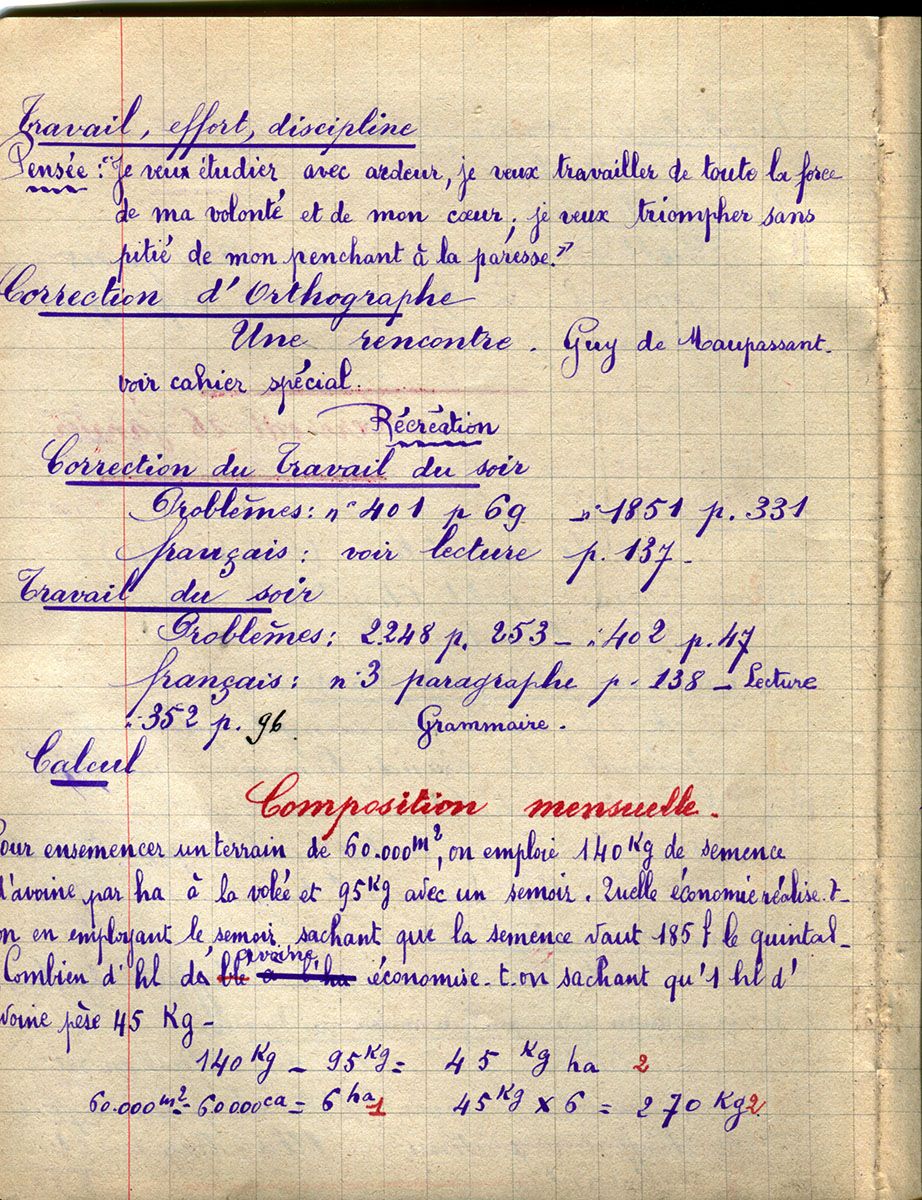 Travail, effort, discipline
Pensée : "Je veux étudier avec ardeur, je veux travailler de toute la force
de ma volonté et de mon cœur, je veux triompher sans
pitié de mon penchant à la paresse."
Correction d'Orthographe
Une rencontre. Guy de Maupassant.
voir cahier spécial.
Récréation
Correction du Travail du soir
Problèmes : n° 401 p 69 _ n° 1851 p. 331
français : voir lecture p. 137 -
Travail du soir
Problèmes : 2.248 p. 253 - : 402 p. 47
français : n° 3 paragraphe p. 138 - Lecture
: 352 p. 96. Grammaire.
Calcul
Composition mensuelle.
Pour ensemencer un terrain de 60.000 m², on emploie 140 Kg de semence
d'avoine par ha à la volée et 95 Kg avec un semoir. Quelle économie réalise-t-
on en employant le semoir, sachant que la semence vaut 185 f le quintal_
Combien d'hl d'avoine économise-t-on sachant qu'1 hl d'
avoine pèse 45 Kg -
140 Kg - 95 Kg = 45 Kg ha 2
60.000 m² = 60000 ca = 6 ha 1 45 Kg × 6 = 270 Kg 2